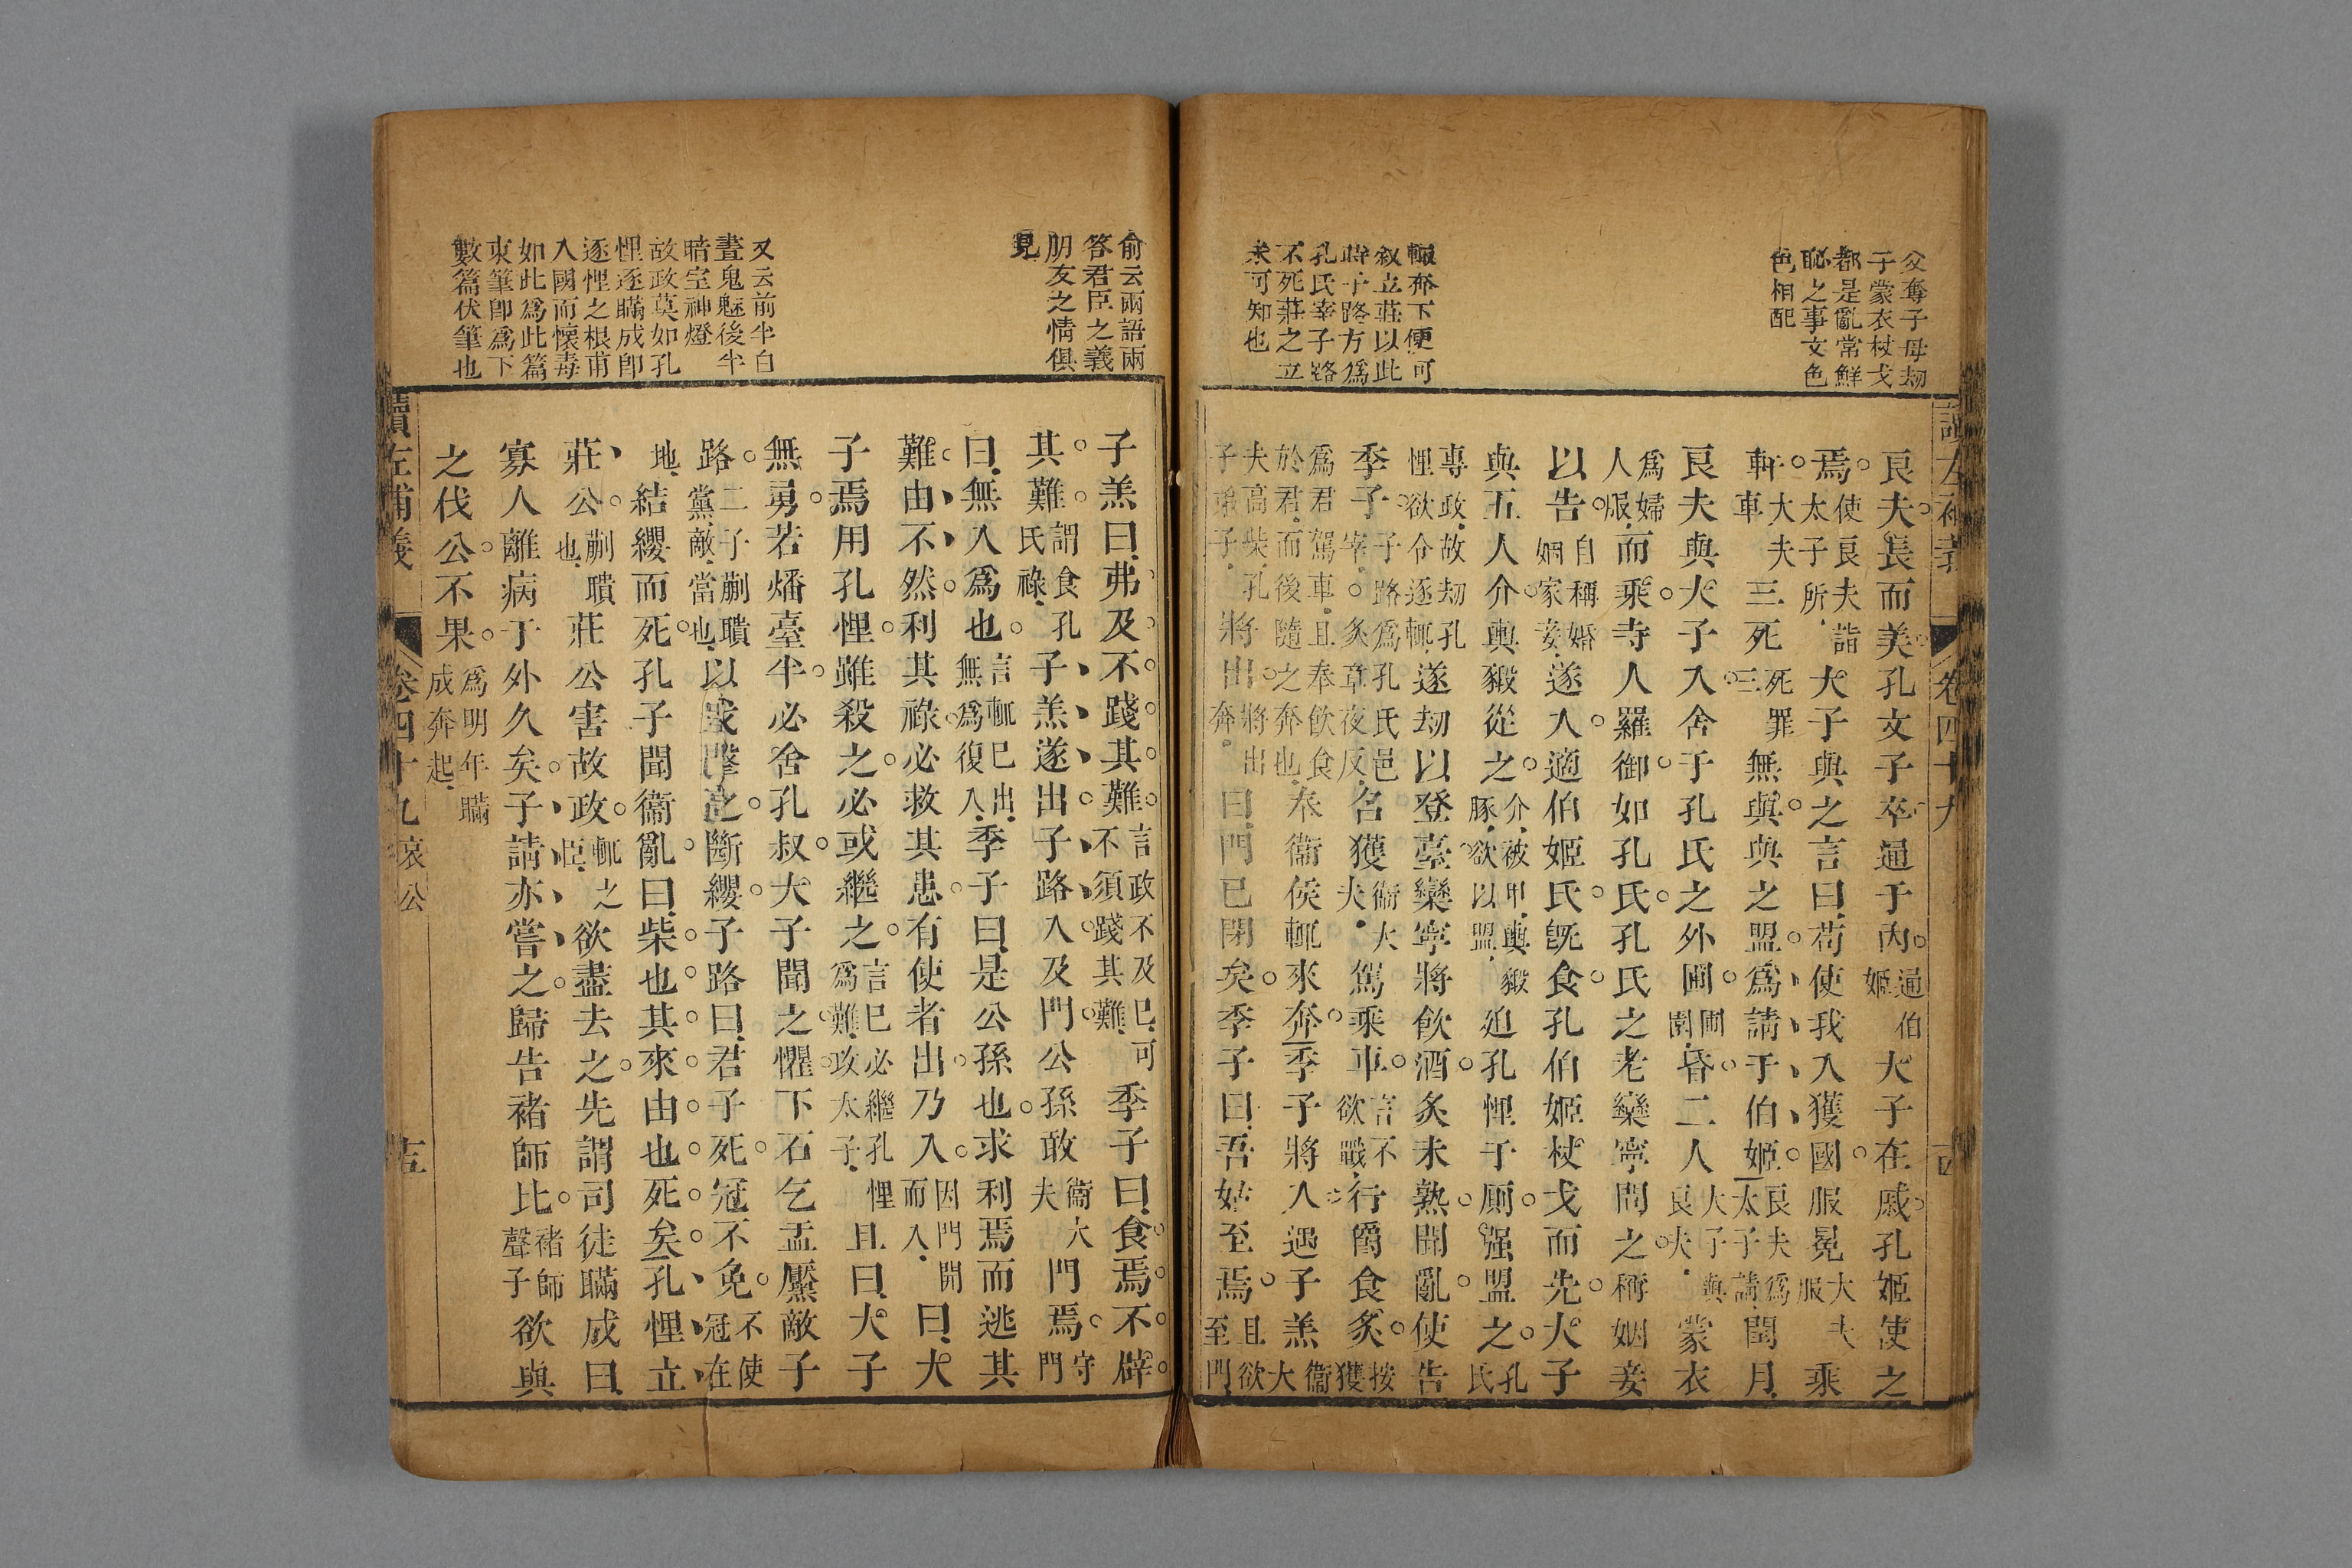 父奪子母劫
子蒙衣杖戈
都是亂常鮮
恥之事文色
色相配
輒奔下便可
敘立莊以此
時子路方爲
孔氏宰子路
不死莊之立
未可知也
讀左補義 卷四十九
良夫長而美孔文子卒通于內通伯姬大子在戚孔姬使之
焉使良夫詣太子所大子與之言曰苟使我入獲國服冕大夫服乘
軒大夫車三死死罪三無與與之盟爲請于伯姬良夫爲太子請閏月
良夫與大子入舍于孔氏之外圃圃園昏二人大子與良夫蒙衣
爲婦人服而乘寺人羅御如孔氏孔氏之老欒寧問之稱姻妾
以告自稱婚姻家妾遂入適伯姬氏旣食孔伯姬杖戈而先大子
與五人介輿豭從之介被甲輿豭豚欲以盟迫孔悝于厠强盟之孔氏
專政故劫孔悝欲令逐輒遂劫以登臺欒寧將飲酒炙未熟聞亂使告
季子子路爲孔氏邑宰炙章夜反召獲衞大夫駕乘車言不欲戰行爵食炙按獲
爲君駕車且奉飲食於君而後隨之奔也奉衞侯輒來奔季子將入遇子羔衞大
夫高柴孔子弟子將出將出奔曰門已閉矣季子曰吾姑至焉且欲至門
俞云兩語兩
答君臣之義
朋友之情俱
見
又云前半白
晝鬼魅後半
暗室神燈
故政莫如孔
悝逐瞞成卽
逐悝之根甫
入國而懷毒
如此爲此篇
束筆卽爲下
數篇伏筆也
子羔曰弗及不踐其難言政不及已可不須踐其難季子曰食焉不辟
其難謂食孔氏祿子羔遂出子路入及門公孫敢衞大夫門焉守門
曰無入爲也言輒已出無爲復入季子曰是公孫也求利焉而逃其
難由不然利其祿必救其患有使者出乃入因門開而入曰大
子焉用孔悝雖殺之必或繼之言已必繼孔悝爲難攻太子且曰大子
無勇若燔臺半必舍孔叔大子聞之懼下石乞盂黶敵子
路二子蒯聵黨敵當也以戈擊之斷纓子路曰君子死冠不免不使冠在
地結纓而死孔子聞衞亂曰柴也其來由也死矣孔悝立
莊公蒯聵也莊公害故政輒之臣欲盡去之先謂司徒瞞成曰
寡人離病于外久矣子請亦嘗之歸告褚師比褚師聲子欲與
之伐公不果爲明年瞞成奔起
讀左補義 卷四十九 哀公